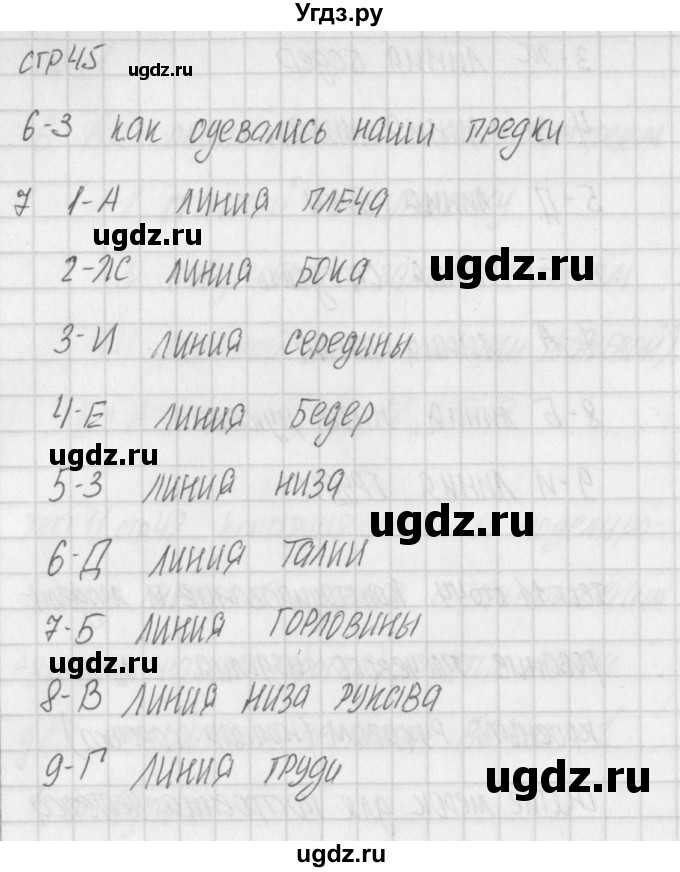 Угдз.ру
стр 45
ugdz.ru
6-3 как одевались наши предки
7 1-А линия плеча
ugdz.ru
ugdz.ru
2-Ж линия бока
3-И линия середины
4-Е линия бедер
ugdz.ru
5-З линия низа
ugdz.ru
6-Д линия талии
7-Б линия горловины
ugdz.ru
8-В линия низа рукава
9-Г линия груди
ugdz.ru
ugdz.ru